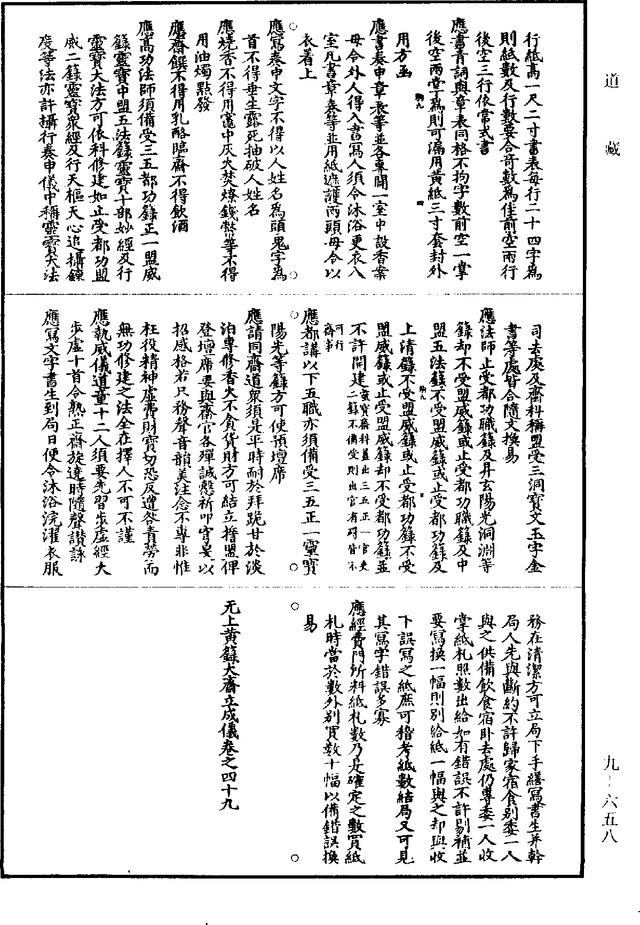 道藏
行紙高一尺二寸書表每行二十四字為
則紙數及行數要合奇數為佳前空兩行
後空三行依常式書
應書青詞與章表同格不拘字數前空一掌
後空兩掌為則可漏用黃紙三寸套封外
用方函
應書奏申章表等並各專開一室中設香案
毋令外人得入書寫人須令沐浴更衣入
室凡書章表等並用紙遮護兩頭毋令以
衣着上
應寫奏申文字不得以人姓名為頭鬼字為
首不得垂生露死抽破人姓名
應燒香不得用竈中灰火焚燎錢幣等不得
用油燭點發
應齋饌不得用乳酪臨齋不得飲酒
應高功法師須備受三五都功籙正一盟威
籙靈寶中盟五法籙靈寶十部妙經及行
靈寶大法方可依科修建如止受都功盟
威二籙靈寶眾經及行天樞天心追攝鍊
度等法亦許攝行奏申儀中稱靈寶大法
司去處及齋科稱盟受三洞寶文玉字金
書等處皆合隨文換易
應法師止受都功職籙及昇玄陽光洞淵等
籙却不受盟威籙或止受都功職籙及中
盟五法籙不受盟威籙或止受都功籙及
上清籙不受盟威籙或止受都功籙不受
盟威籙或止受盟威籙却不受都功籙並
不許開建靈寶齋科蓋出三五正一官吏二籙不備受則出官有碍皆不可行齋事
應都講以下五職亦須備受三五正一靈寶
陽光等籙方可使預壇席
應請同齋道眾須是平時耐於拜跪甘於淡
泊專修香火不貪貨財方可結立揩盟俾
登壇席要與齋官各殫誠懇祈叩穹昊以
招感格若只務聲音韻美注念不專非惟
枉役精神虛費財寶切恐反遭咎責勞而
無功修建之法全在擇人不可不謹
應執威儀道童十二人須要先習步虛經大
步虛十首令熟正齋旋遶時隨聲讚詠
應寫文字書生到局日便令沐浴浣濯衣服
務在清潔方可立局下手繕寫書生并幹
局人先與斷約不許歸家宿食別委一人
與之供備飲食宿卧去處仍專委一人收
掌紙札照數出給如有錯誤不許剜補並
要寫換一幅則別給紙一幅與之却與收
下誤寫之紙庶可稽考紙數結局又可見
其寫字錯誤多寡
應經費門所料紙札數乃是確定之數買紙
札時當於數外別買數十幅以備錯誤換
易
无上黃籙大齋立成儀卷之四十九
九-六五八